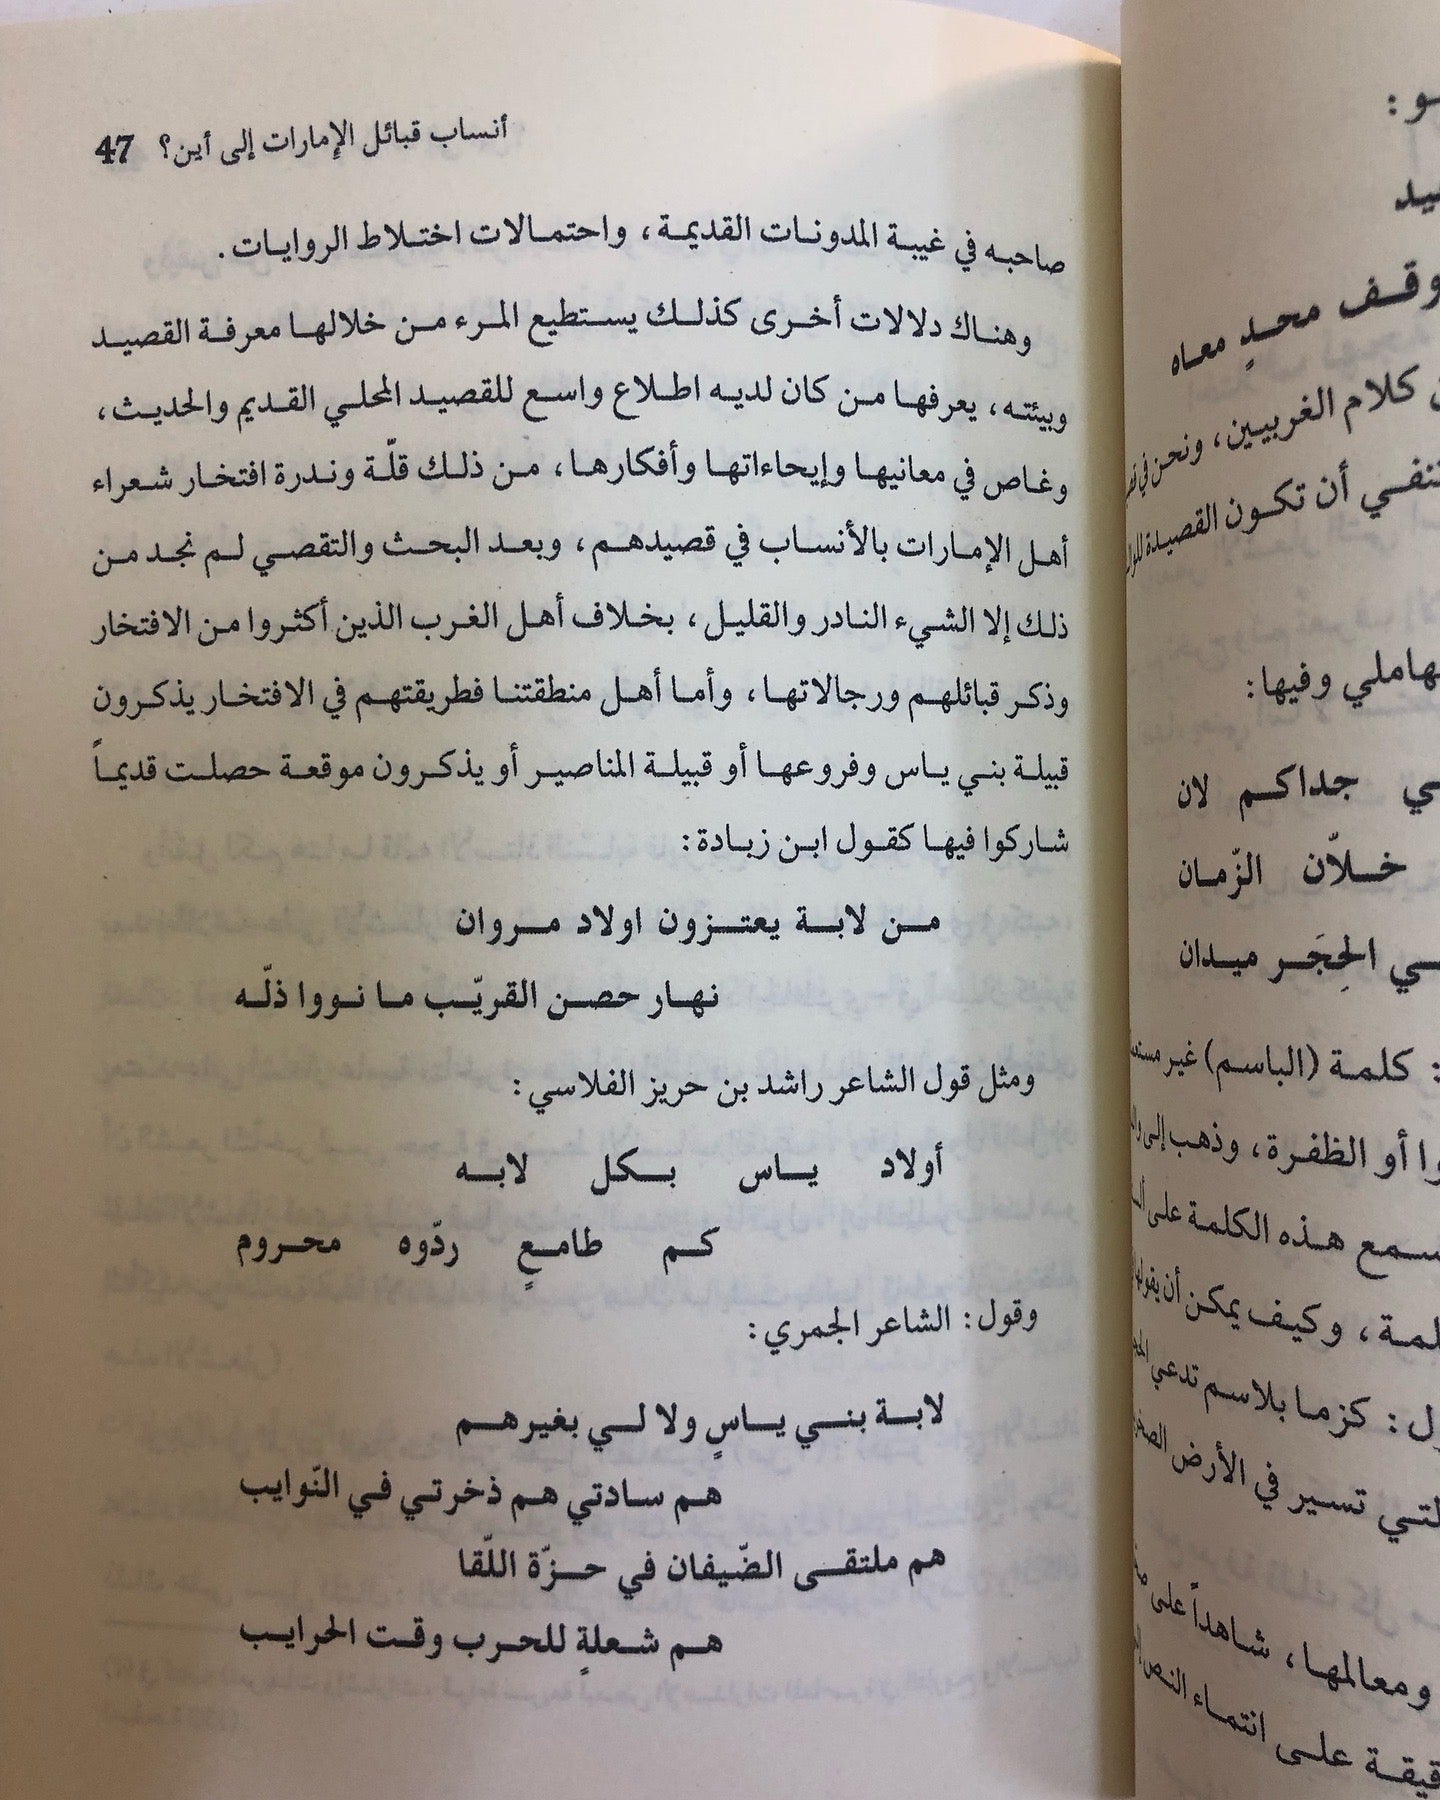 أنساب قبائل الإمارات إلى أين؟ 47
صاحبه في غيبة المدونات القديمة، واحتمالات اختلاط الروايات.
وهناك دلالات أخرى كذلك يستطيع المرء من خلالها معرفة القصيد
وبيئته، يعرفها من كان لديه اطلاع واسع للقصيد المحلي القديم والحديث،
وغاص في معانيها وإيحاءاتها وأفكارها، من ذلك قلّة وندرة افتخار شعراء
أهل الإمارات بالأنساب في قصيدهم، وبعد البحث والتقصي لم نجد من
ذلك إلا الشيء النادر والقليل، بخلاف أهل الغرب الذين أكثروا من الافتخار
وذكر قبائلهم ورجالاتها، وأما أهل منطقتنا فطريقتهم في الافتخار يذكرون
قبيلة بني ياس وفروعها أو قبيلة المناصير أو يذكرون موقعة حصلت قديماً
شاركوا فيها كقول ابن زبادة:
من لابة يعتزون اولاد مروان
نهار حصن القريّب ما نووا ذلّه
ومثل قول الشاعر راشد بن حريز الفلاسي:
أولاد ياس بكل لابه
كم طامعٍ ردّوه محروم
وقول: الشاعر الجمري:
لابة بني ياسٍ ولا لي بغيرهم
هم سادتي هم ذخرتي في النّوايب
هم ملتقى الضّيفان في حزّة اللّقا
هم شعلةٍ للحرب وقت الحرايب
وقف محدٍ معاه
كلام الغربيين، ونحن في
أن تكون القصيدة
وفيها:
جداكم لان
خلاّن الزّمان
الحِجَر ميدان
: كلمة (الباسم) غير
أو الظفرة، وذهب إلى
هذه الكلمة على
وكيف يمكن أن
: كزما بلاسم تدعي
تسير في الأرض
ومعالمها، شاهداً على
على انتماء النص